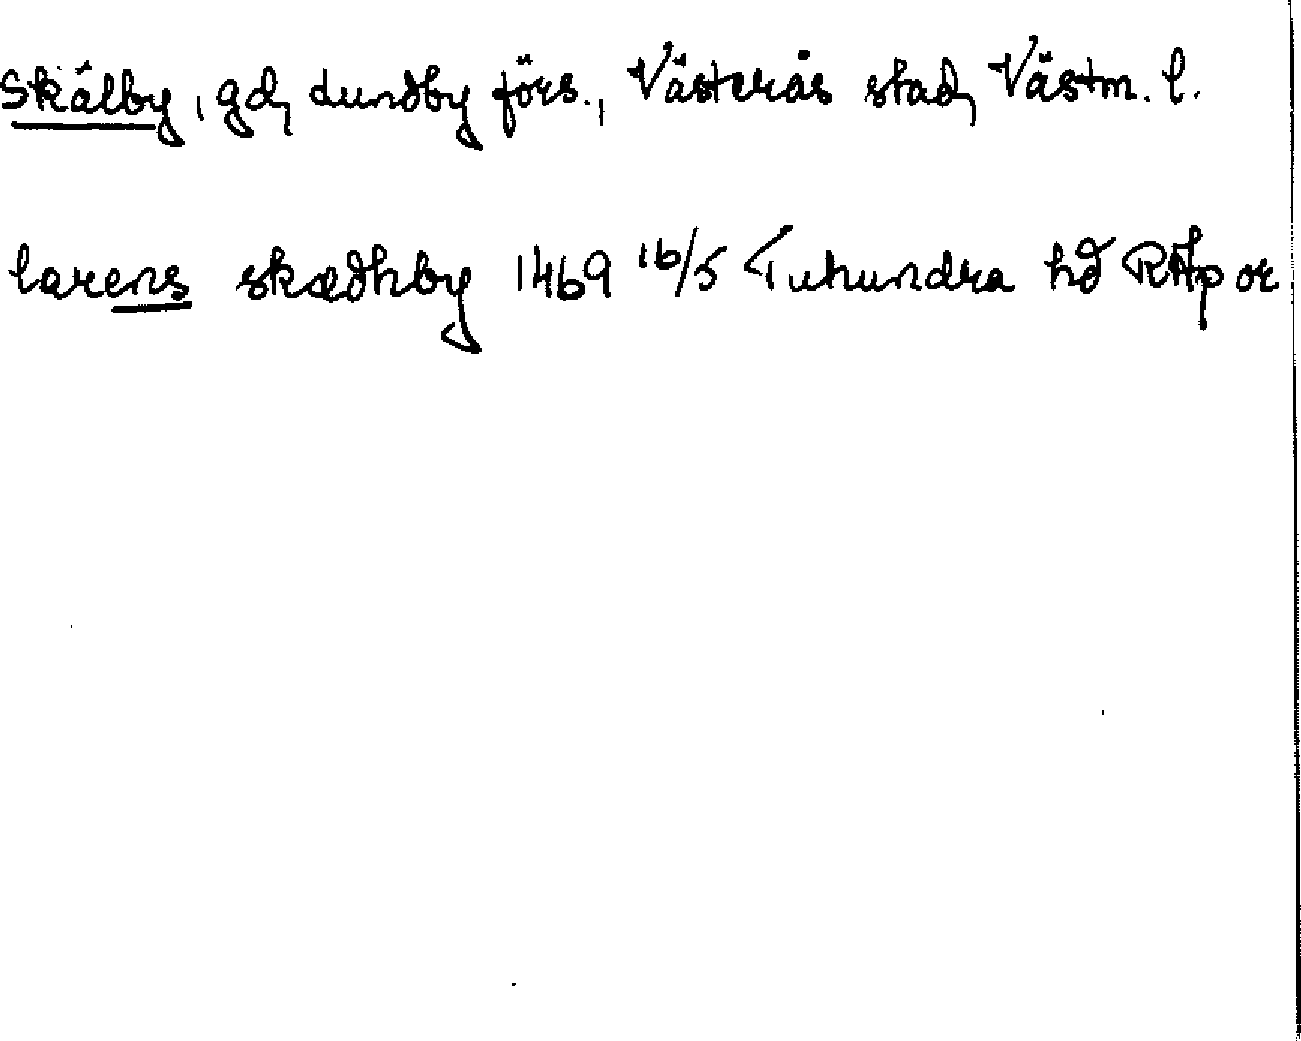 Skälby, gd, Lundby förs., Västerås stad, Västm. l.
larens skædhby 1469 16/5 Tuhundra hd RAp or